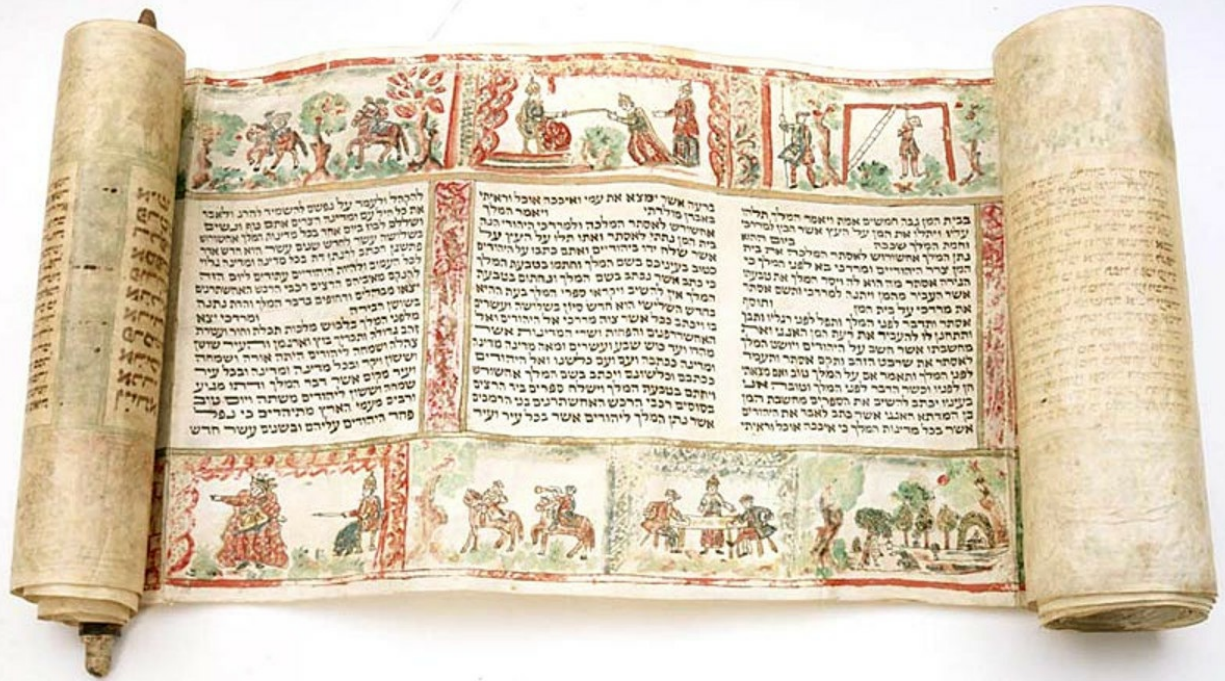 בבית המן גבה חמשים אמה ויאמר המלך תלהו
עליו ויתלו את המן על העץ אשר הכין למרדכי
וחמת המלך שככה ביום ההוא
נתן המלך אחשורוש לאסתר המלכה את בית
המן צרר היהודיים ומרדכי בא לפני המלך כי
הגידה אסתר מה הוא לה ויסר המלך את טבעתו
אשר העביר מהמן ויתנה למרדכי ותשם אסתר
את מרדכי על בית המן ותוסף
אסתר ותדבר לפני המלך ותפל לפני רגליו ותבך
ותתחנן לו להעביר את רעת המן האגגי ואת
מחשבתו אשר חשב על היהודיים ויושט המלך
לאסתר את שרבט הזהב ותקם אסתר ותעמד
לפני המלך ותאמר אם על המלך טוב ואם מצאתי
חן לפניו וכשר הדבר לפני המלך וטובה אני
בעיניו יכתב להשיב את הספרים מחשבת המן
בן המדתא האגגי אשר כתב לאבד את היהודים
אשר בכל מדינות המלך כי איככה אוכל וראיתי
ברעה אשר ימצא את עמי ואיככה אוכל וראיתי
באבדן מולדתי ויאמר המלך
אחשורש לאסתר המלכה ולמרדכי היהודי הנה
בית המן נתתי לאסתר ואתו תלו על העץ על
אשר שלח ידו ביהודיים ואתם כתבו על היהודים
כטוב בעיניכם בשם המלך וחתמו בטבעת המלך
כי כתב אשר נכתב בשם המלך ונחתום בטבעת
המלך אין להשיב ויקראו ספרי המלך בעת ההיא
בחדש השלישי הוא חדש סיון בשלושה ועשרים
בו ויכתב ככל אשר צוה מרדכי אל היהודים ואל
האחשדרפנים והפחות ושרי המדינות אשר
מהדו ועד כוש שבע ועשרים ומאה מדינה מדינה
ומדינה ככתבה ועם ועם כלשנו ואל היהודים
ככתבם וכלשונם ויכתב בשם המלך אחשורש
ויחתם בטבעת המלך וישלח ספרים ביד הרצים
בסוסים רכבי הרכש האחשתרנים בני הרמכים
אשר נתן המלך ליהודים אשר בכל עיר ועיר
להקהל ולעמד על נפשם להשמיד להרג ולאבד
את כל חיל עם ומדינה הצרים אתם טף ונשים
ושללם לבוז ביום אחד בכל מדינות המלך אחשורוש
בשלושה עשר לחדש שנים עשר הוא חדש אדר
פתשגן הכתב להנתן דת בכל מדינה ומדינה גלוי
לכל העמים ולהיות היהודיים עתודים ליום הזה
להנקם מאיביהם הרצים רכבי הרכש האחשתרנים
יצאו מבהלים ודחופים בדבר המלך והדת נתנה
בשושן הבירה ומרדכי יצא
מלפני המלך בלבוש מלכות תכלת וחור ועטרת
זהב גדולה ותכריך בוץ וארגמן והעיר שושן
צהלה ושמחה ליהודים היתה אורה ושמחה
וששון ויקר ובכל מדינה ומדינה ובכל עיר
ועיר מקום אשר דבר המלך ודתו מגיע
שמחה וששון ליהודים משתה ויום טוב
ורבים מעמי הארץ מתיהדים כי נפל
פחד היהודים עליהם ובשנים עשר חדש